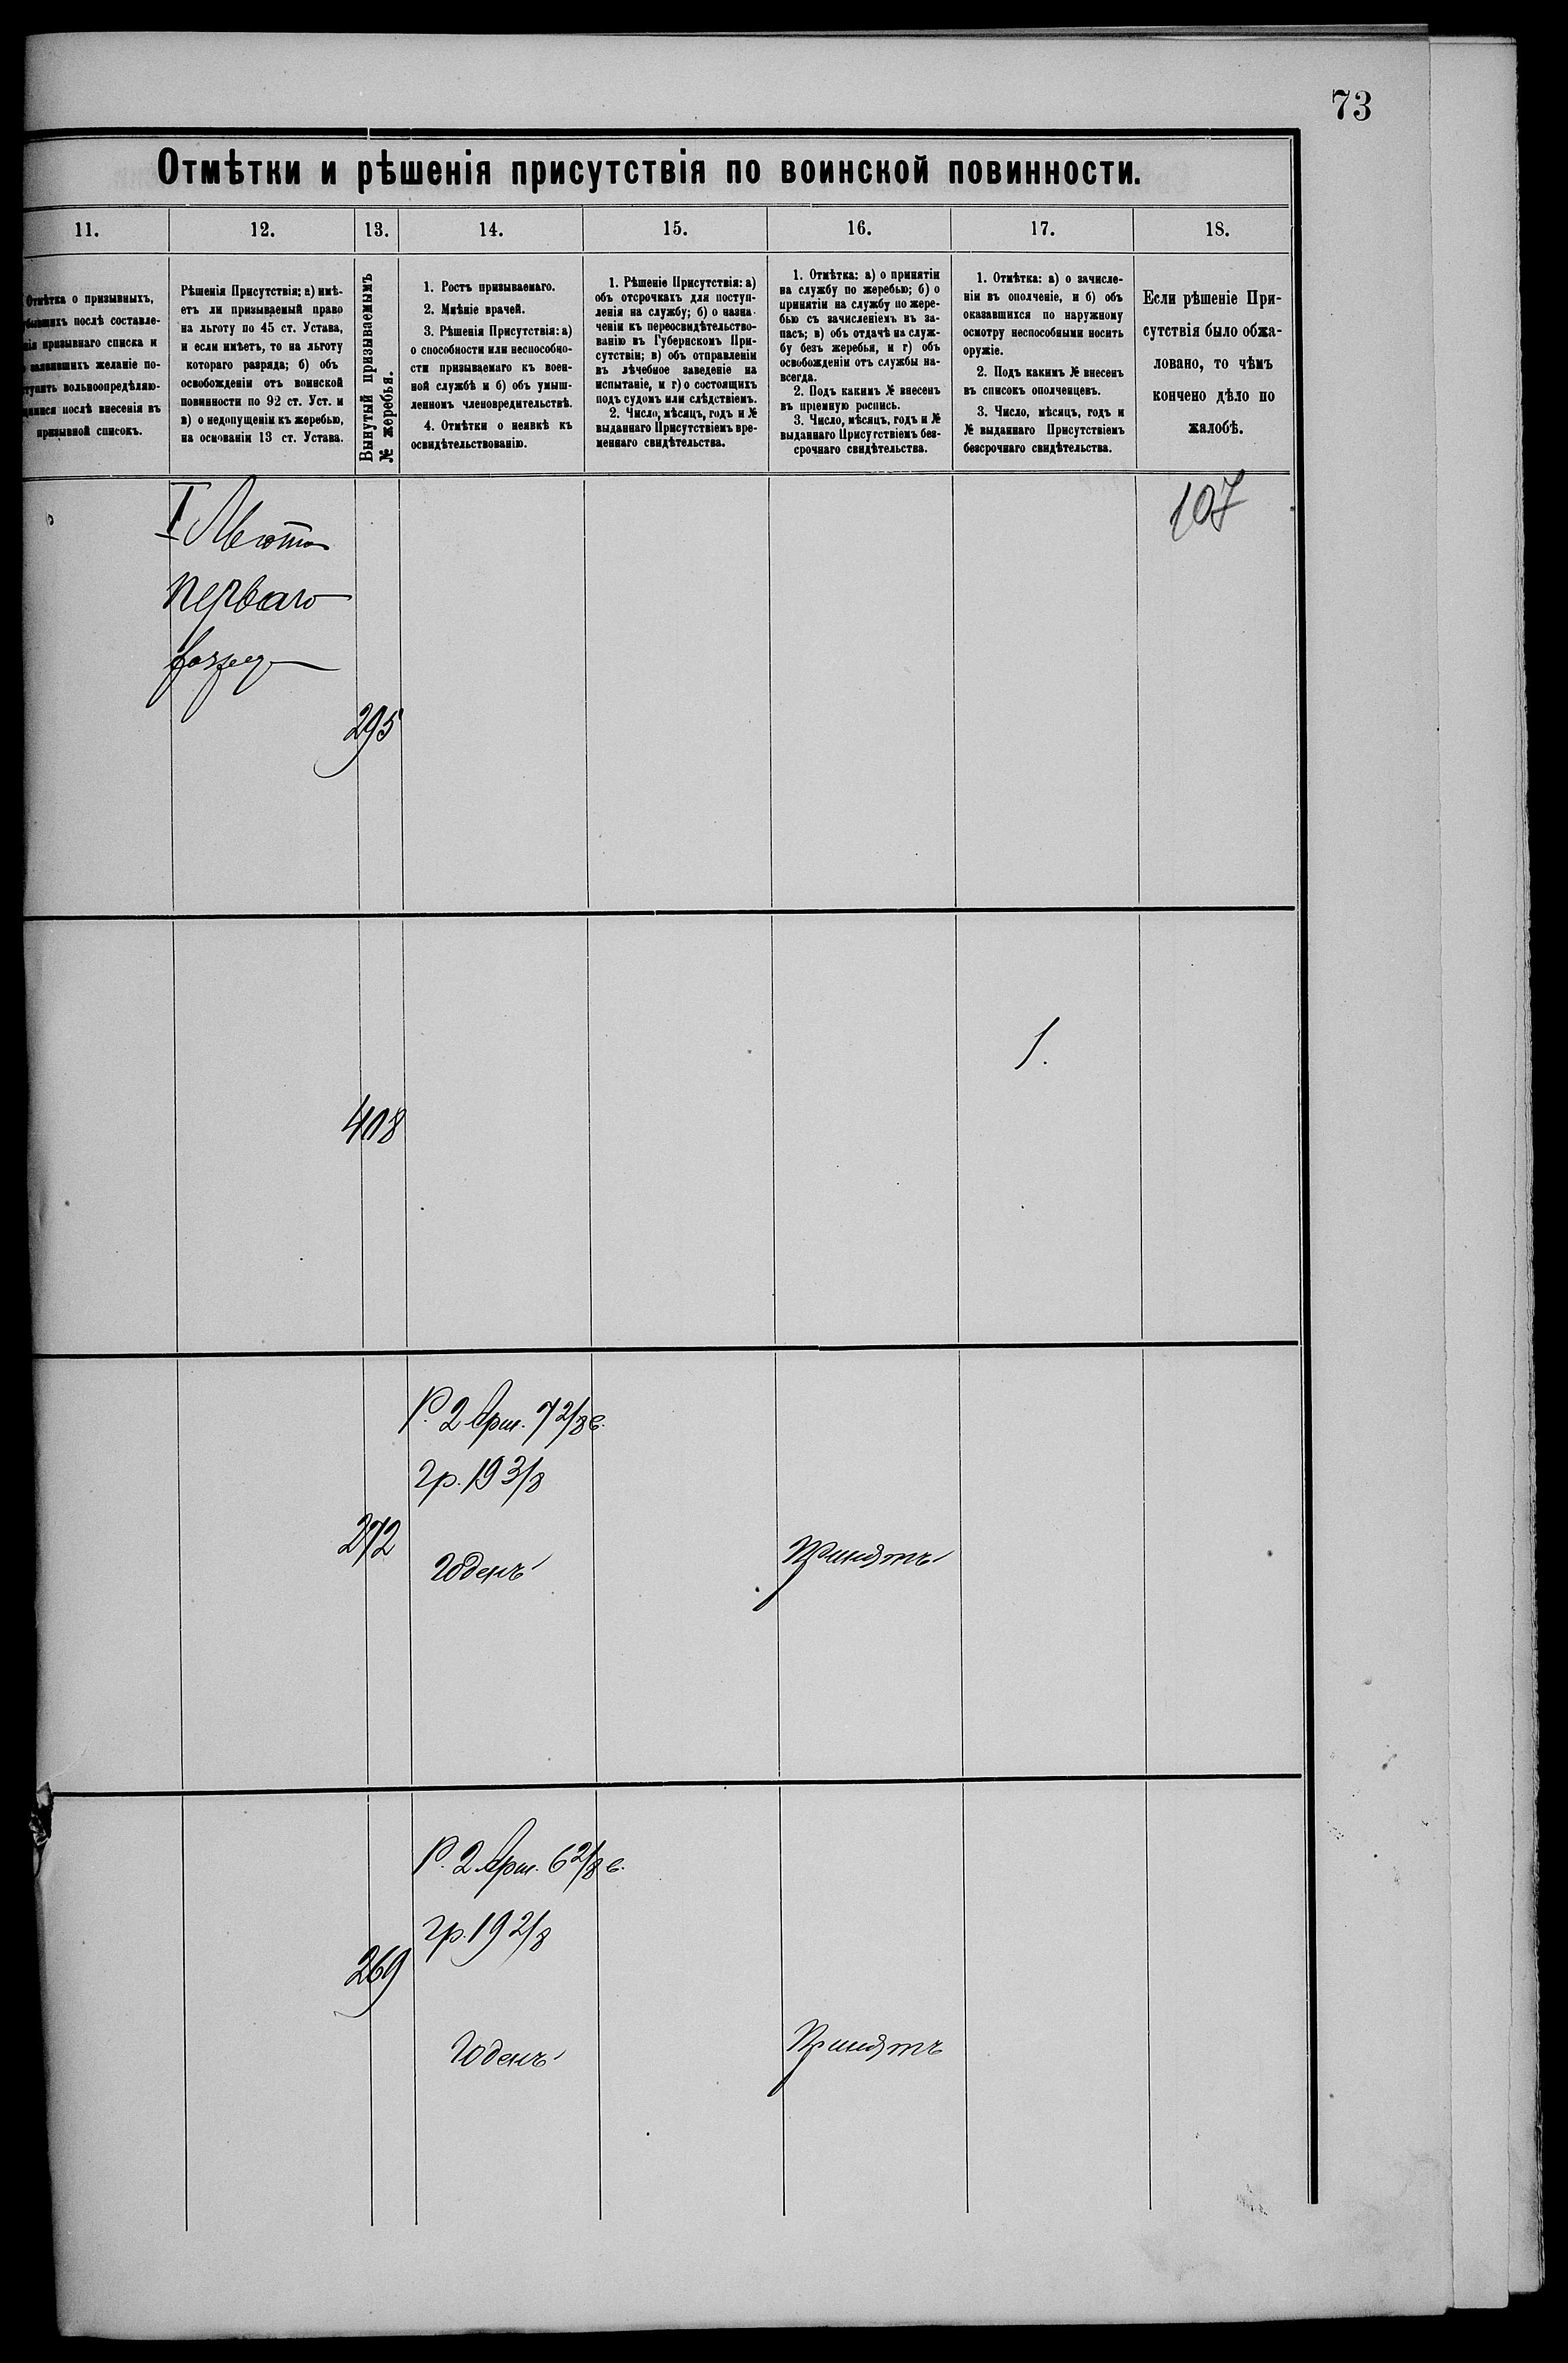 73
Отмѣтки и рѣшенія присутствія по воинской повинности.
11. 12. 13. 14. 15. 16. 17. 18.
Отмѣтка о призывныхъ,
убывшихъ послѣ составле-
нія призывнаго списка и
заявившихъ желаніе по-
ступить вольноопредѣляю-
щимися послѣ внесенія въ
призывной списокъ.
Рѣшенія Присутствія: а) имѣ-
етъ ли призываемый право
на льготу по 45 ст. Устава,
и если имѣетъ, то на льготу
котораго разряда; б) объ
освобожденіи отъ воинской
повинности по 92 ст. Уст. и
в) о недопущеніи къ жеребью,
на основаніи 13 ст. Устава.
Вынутый призываемымъ
№ жеребья.
1. Ростъ призываемаго.
2. Мнѣніе врачей.
3. Рѣшенія Присутствія: а)
о способности или неспособно-
сти призываемаго къ воен-
ной службѣ и б) объ умыш-
ленномъ членовредительствѣ.
4. Отмѣтки о неявкѣ къ
освидѣтельствованію.
1. Рѣшеніе Присутствія: а)
объ отсрочкахъ для поступ-
ленія на службу; б) о назна-
ченіи къ переосвидѣтельство-
ванію въ Губернскомъ При-
сутствіи; в) объ отправленіи
въ лѣчебное заведеніе на
испытаніе, и г) о состоящихъ
подъ судомъ или слѣдствіемъ.
2. Число, мѣсяцъ, годъ и №
выданнаго Присутствіемъ вре-
меннаго свидѣтельства.
1. Отмѣтка: а) о принятіи
на службу по жеребью; б) о
принятіи на службу по жере-
бью съ зачисленіемъ въ за-
пасъ; в) объ отдачѣ на служ-
бу безъ жеребья, и г) объ
освобожденіи отъ службы на-
всегда.
2. Подъ какимъ № внесенъ
въ пріемную роспись.
3. Число, мѣсяцъ, годъ и №
выданнаго Присутствіемъ без-
срочнаго свидѣтельства.
1. Отмѣтка: а) о зачисле-
ніи въ ополченіе, и б) объ
оказавшихся по наружному
осмотру неспособными носить
оружіе.
2. Подъ какимъ № внесенъ
въ списокъ ополченцевъ.
3. Число, мѣсяцъ, годъ и
№ выданнаго Присутствіемъ
безсрочнаго свидѣтельства.
Если рѣшеніе При-
сутствія было обжа-
ловано, то чѣмъ
кончено дѣло по
жалобѣ.
I Льгота
перваго
107
295
1.
408
Р. 2 Арш. 7 2/8 в.
гр. 19 3/8
272
Годенъ
Принятъ
Р. 2 Арш. 6 2/8 в.
гр. 19 2/8
269
Годенъ
Принятъ